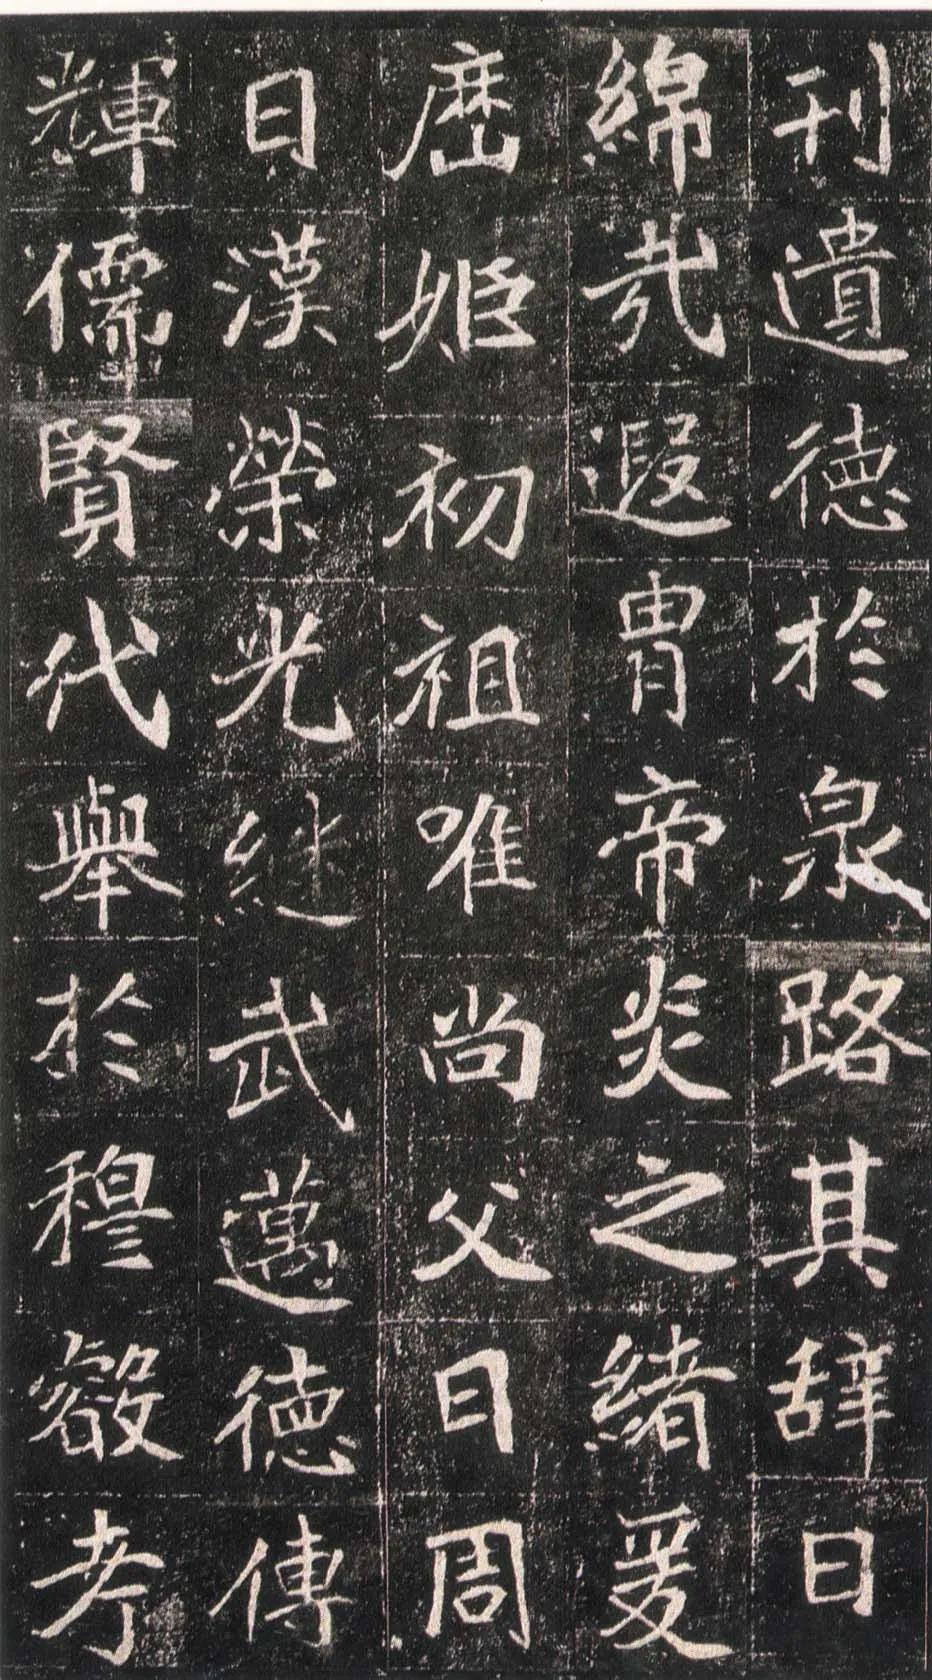 刊遺德於泉路其辞曰
綿哉遐胄帝炎之緒爰
歷姬初祖唯尚父曰周
曰漢榮光継武邁德傳
輝儒賢代舉於穆叡考